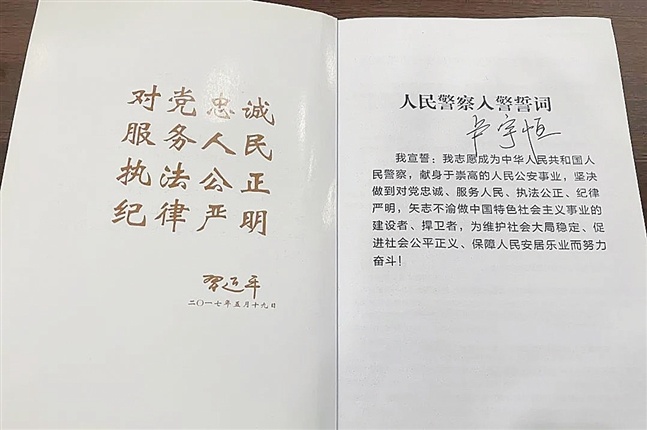 对党忠诚
服务人民
执法公正
纪律严明
习近平
二〇一七年五月十九日
人民警察入警誓词
尹宇恒
我宣誓：我志愿成为中华人民共和国人
民警察，献身于崇高的人民公安事业，坚决
做到对党忠诚、服务人民、执法公正、纪律
严明，矢志不渝做中国特色社会主义事业的
建设者、捍卫者，为维护社会大局稳定、促
进社会公平正义、保障人民安居乐业而努力
奋斗！